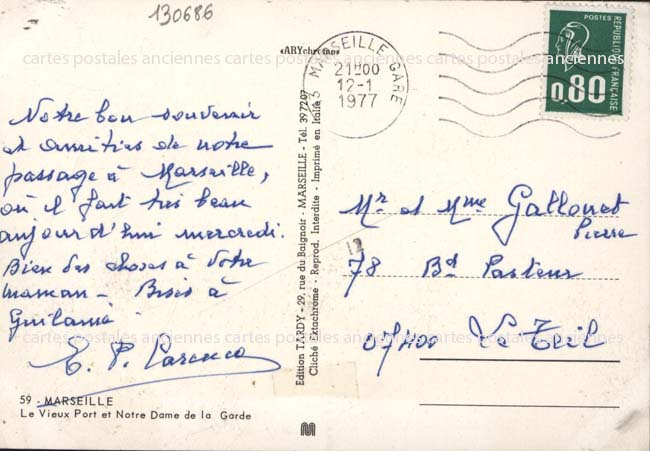 130686
«ARYchrome»
MARSEILLE GARE
21H00
12-1
1977
POSTES
REPUBLIQUE FRANÇAISE
0,80
cartes postales anciennes cartes postales anciennes cartes postales anciennes
Notre bon souvenir
et amitiés de notre
passage à Marseille,
où il fait très beau
aujourd'hui mercredi.
Bien des choses à votre
maman - Bises à
Guilaine
cartes postales anciennes cartes postales anciennes cartes postales anciennes
E. P.
59 - MARSEILLE
Le Vieux Port et Notre Dame de la Garde
Edition TARDY - 29, rue du Baignoir - MARSEILLE - Tél. 397207
Cliché Ektachrome - Reprod. Interdite - Imprimé en Italie
Mr et Mme Gallonet
Pierre
12
78 Bd Pasteur
07400 Le Teil
cartes postales anciennes cartes postales anciennes cartes postales anciennes
M